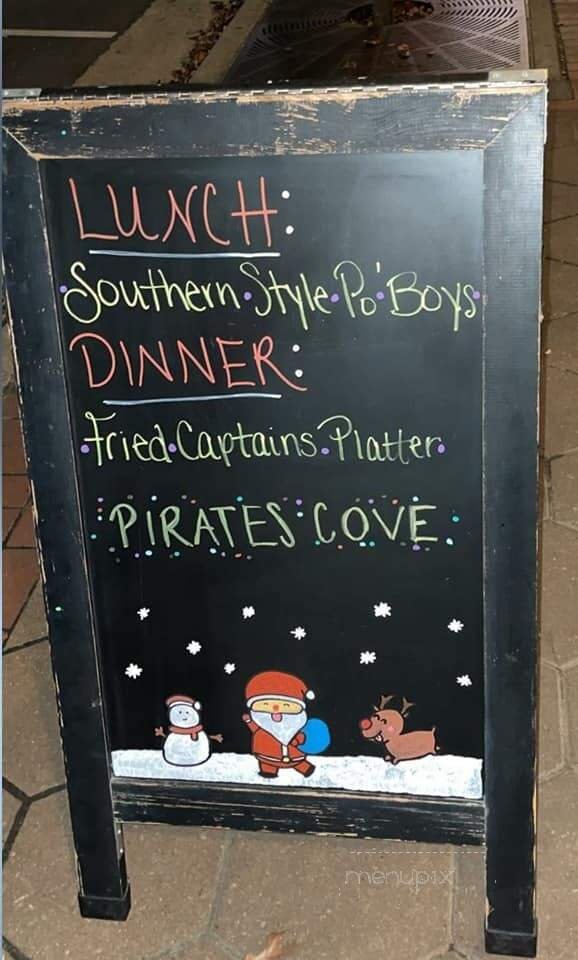 LUNCH:
Southern Style Po' Boys
DINNER:
Fried Captains Platter
PIRATES COVE
menupix